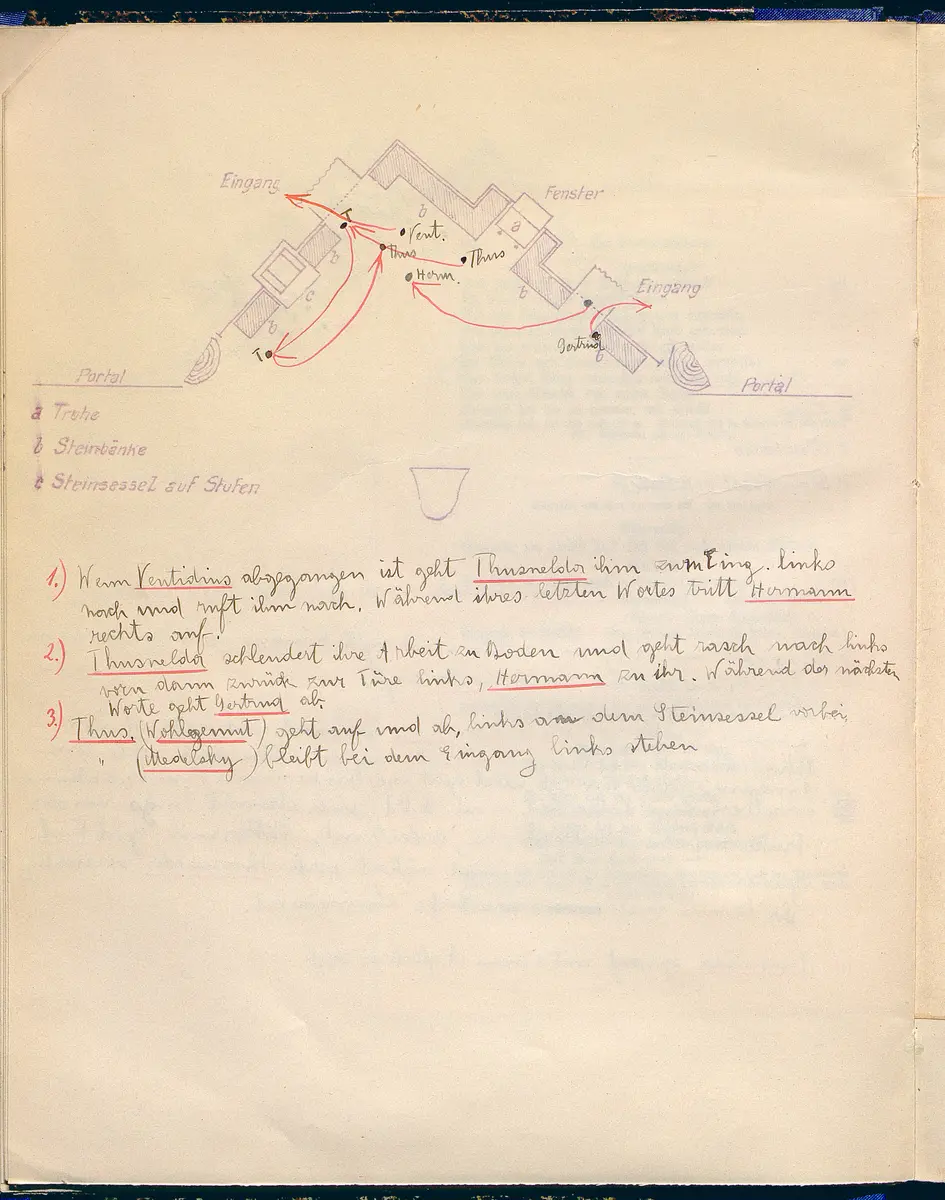 Eingang
Fenster
b
a
T
Vent.
Thus
Thus
b
Herm.
b
Eingang
c
b
Gertrud
b
T
Portal
Portal
a Truhe
b Steinbänke
c Steinsessel auf Stufen
1.) Wenn Ventidius abgegangen ist geht Thusnelda ihm zum Eing. links
nach und ruft ihm nach. Während ihres letzten Wortes tritt Hermann
rechts auf.
2.) Thusnelda schleudert ihre Arbeit zu Boden und geht rasch nach links
vorn dann zurück zur Türe links, Hermann zu ihr. Während der nächsten
Worte geht Gertrud ab.
3.) Thus. (Wohlgemut) geht auf und ab, links an dem Steinsessel vorbei,
" (Medelsky) bleibt bei dem Eingang links stehen